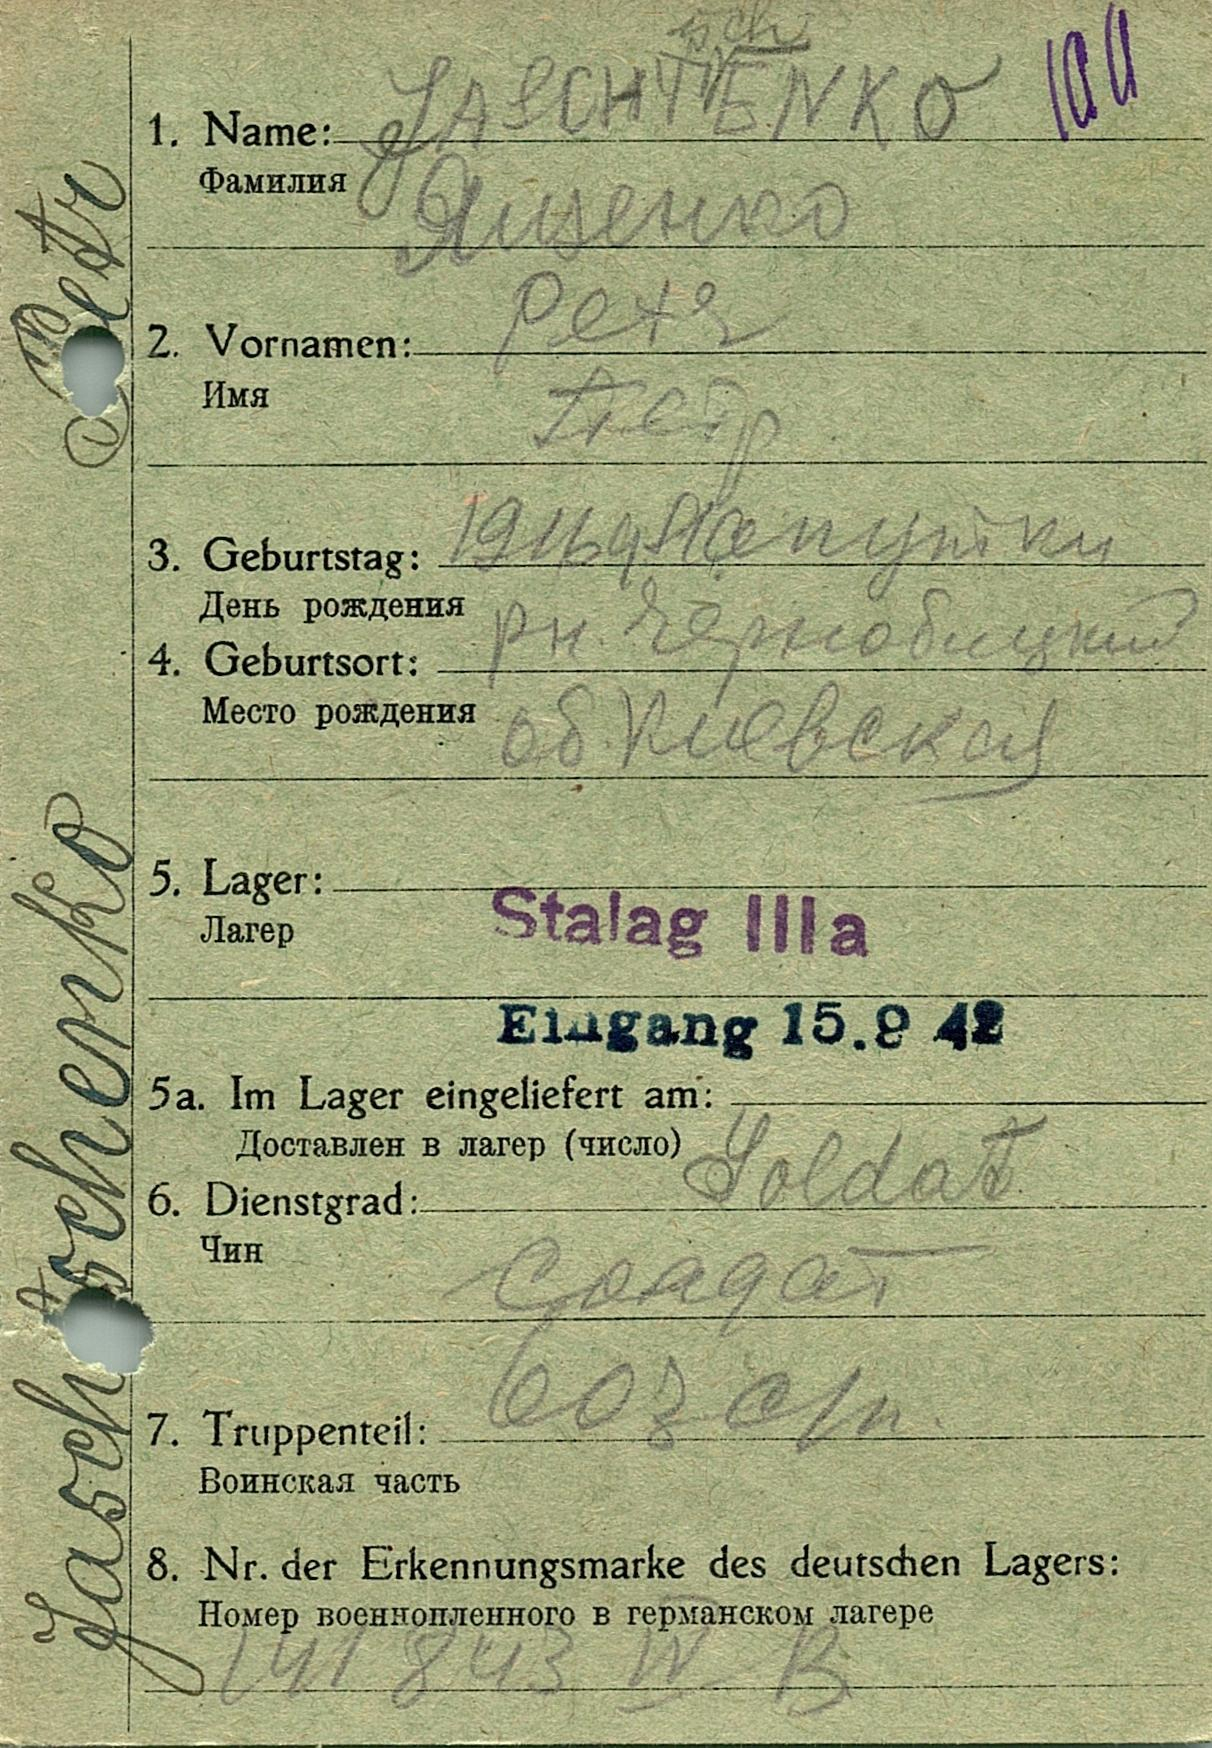 sch
1. Name: JASCHTENKO
Фамилия
Ященко
2. Vornamen: Petr
Имя
Петр
3. Geburtstag: 1916
День рождения
рн. Чернобыцкий
4. Geburtsort:
Место рождения
об Киевская
5. Lager:
Лагер
Stalag IIIa
Eingang 15.9 42
5a. Im Lager eingeliefert am:
Доставлен в лагер (число)
6. Dienstgrad: Soldat
Чин
Солдат
7. Truppenteil: 603 с/п.
Воинская часть
8. Nr. der Erkennungsmarke des deutschen Lagers:
Номер военнопленного в германском лагере
141843 IV B
Jaschtschenko Petr